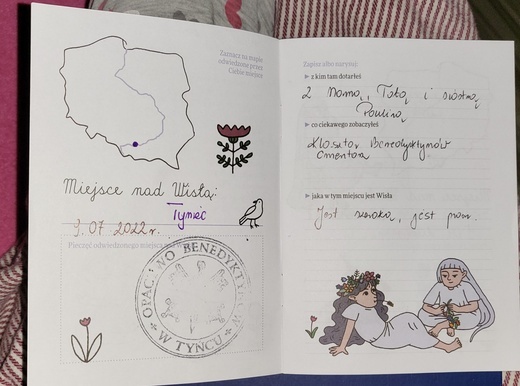 Zaznacz na mapie
odwiedzone przez
Ciebie miejsce
Miejsce nad Wisłą:
Tyniec
9.07 2022r.
Pieczęć odwiedzonego miejsca
OPACTWO BENEDYKTYNÓW
W TYŃCU
Zapisz albo narysuj:
z kim tam dotarłeś
z Mamą, Tatą i siostrą
Pauliną
co ciekawego zobaczyłeś
Klasztor Benedyktynów
cmentarz
jaka w tym miejscu jest Wisła
Jest szeroka, jest